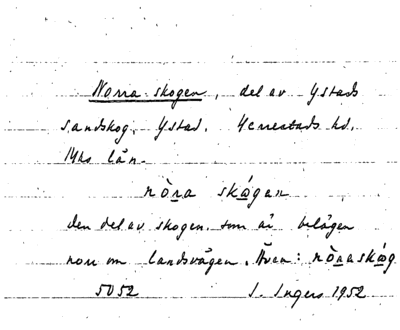 Norra skogen, del av Ystads
sandskog, Ystad. Herrestads hd.
Mhs län.
nòra skógan
den del av skogen som är belägen
norr om landsvägen. Även: nòraskóg
5052 I. Ingers 1952